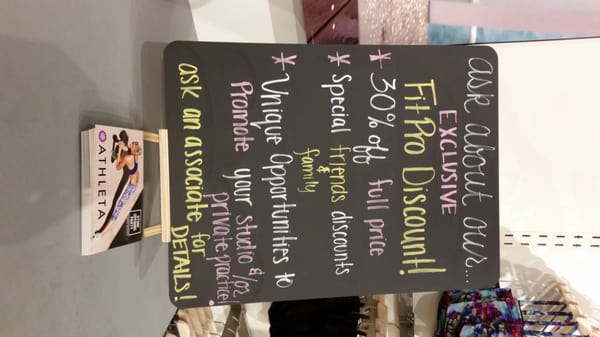 ask about our...
EXCLUSIVE
FitPro Discount!
* 30% off full price
* Special friends & family discounts
* Unique Opportunities to
Promote your studio &/or
private practice!
ask an associate for
DETAILS!
ATHLETA